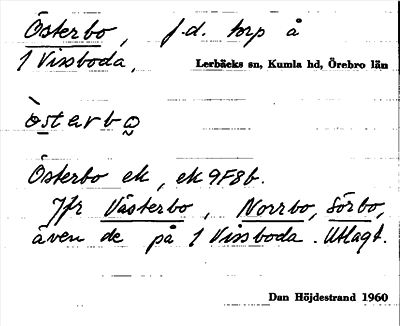 Österbo, f.d. torp å
1 Vissboda,
Lerbäcks sn, Kumla hd, Örebro län
ò̲sterbo̰
Österbo ek, ek 9F8b.
Jfr Västerbo, Norrbo, Sörbo,
även de på 1 Vissboda. Utlagt.
Dan Höjdestrand 1960